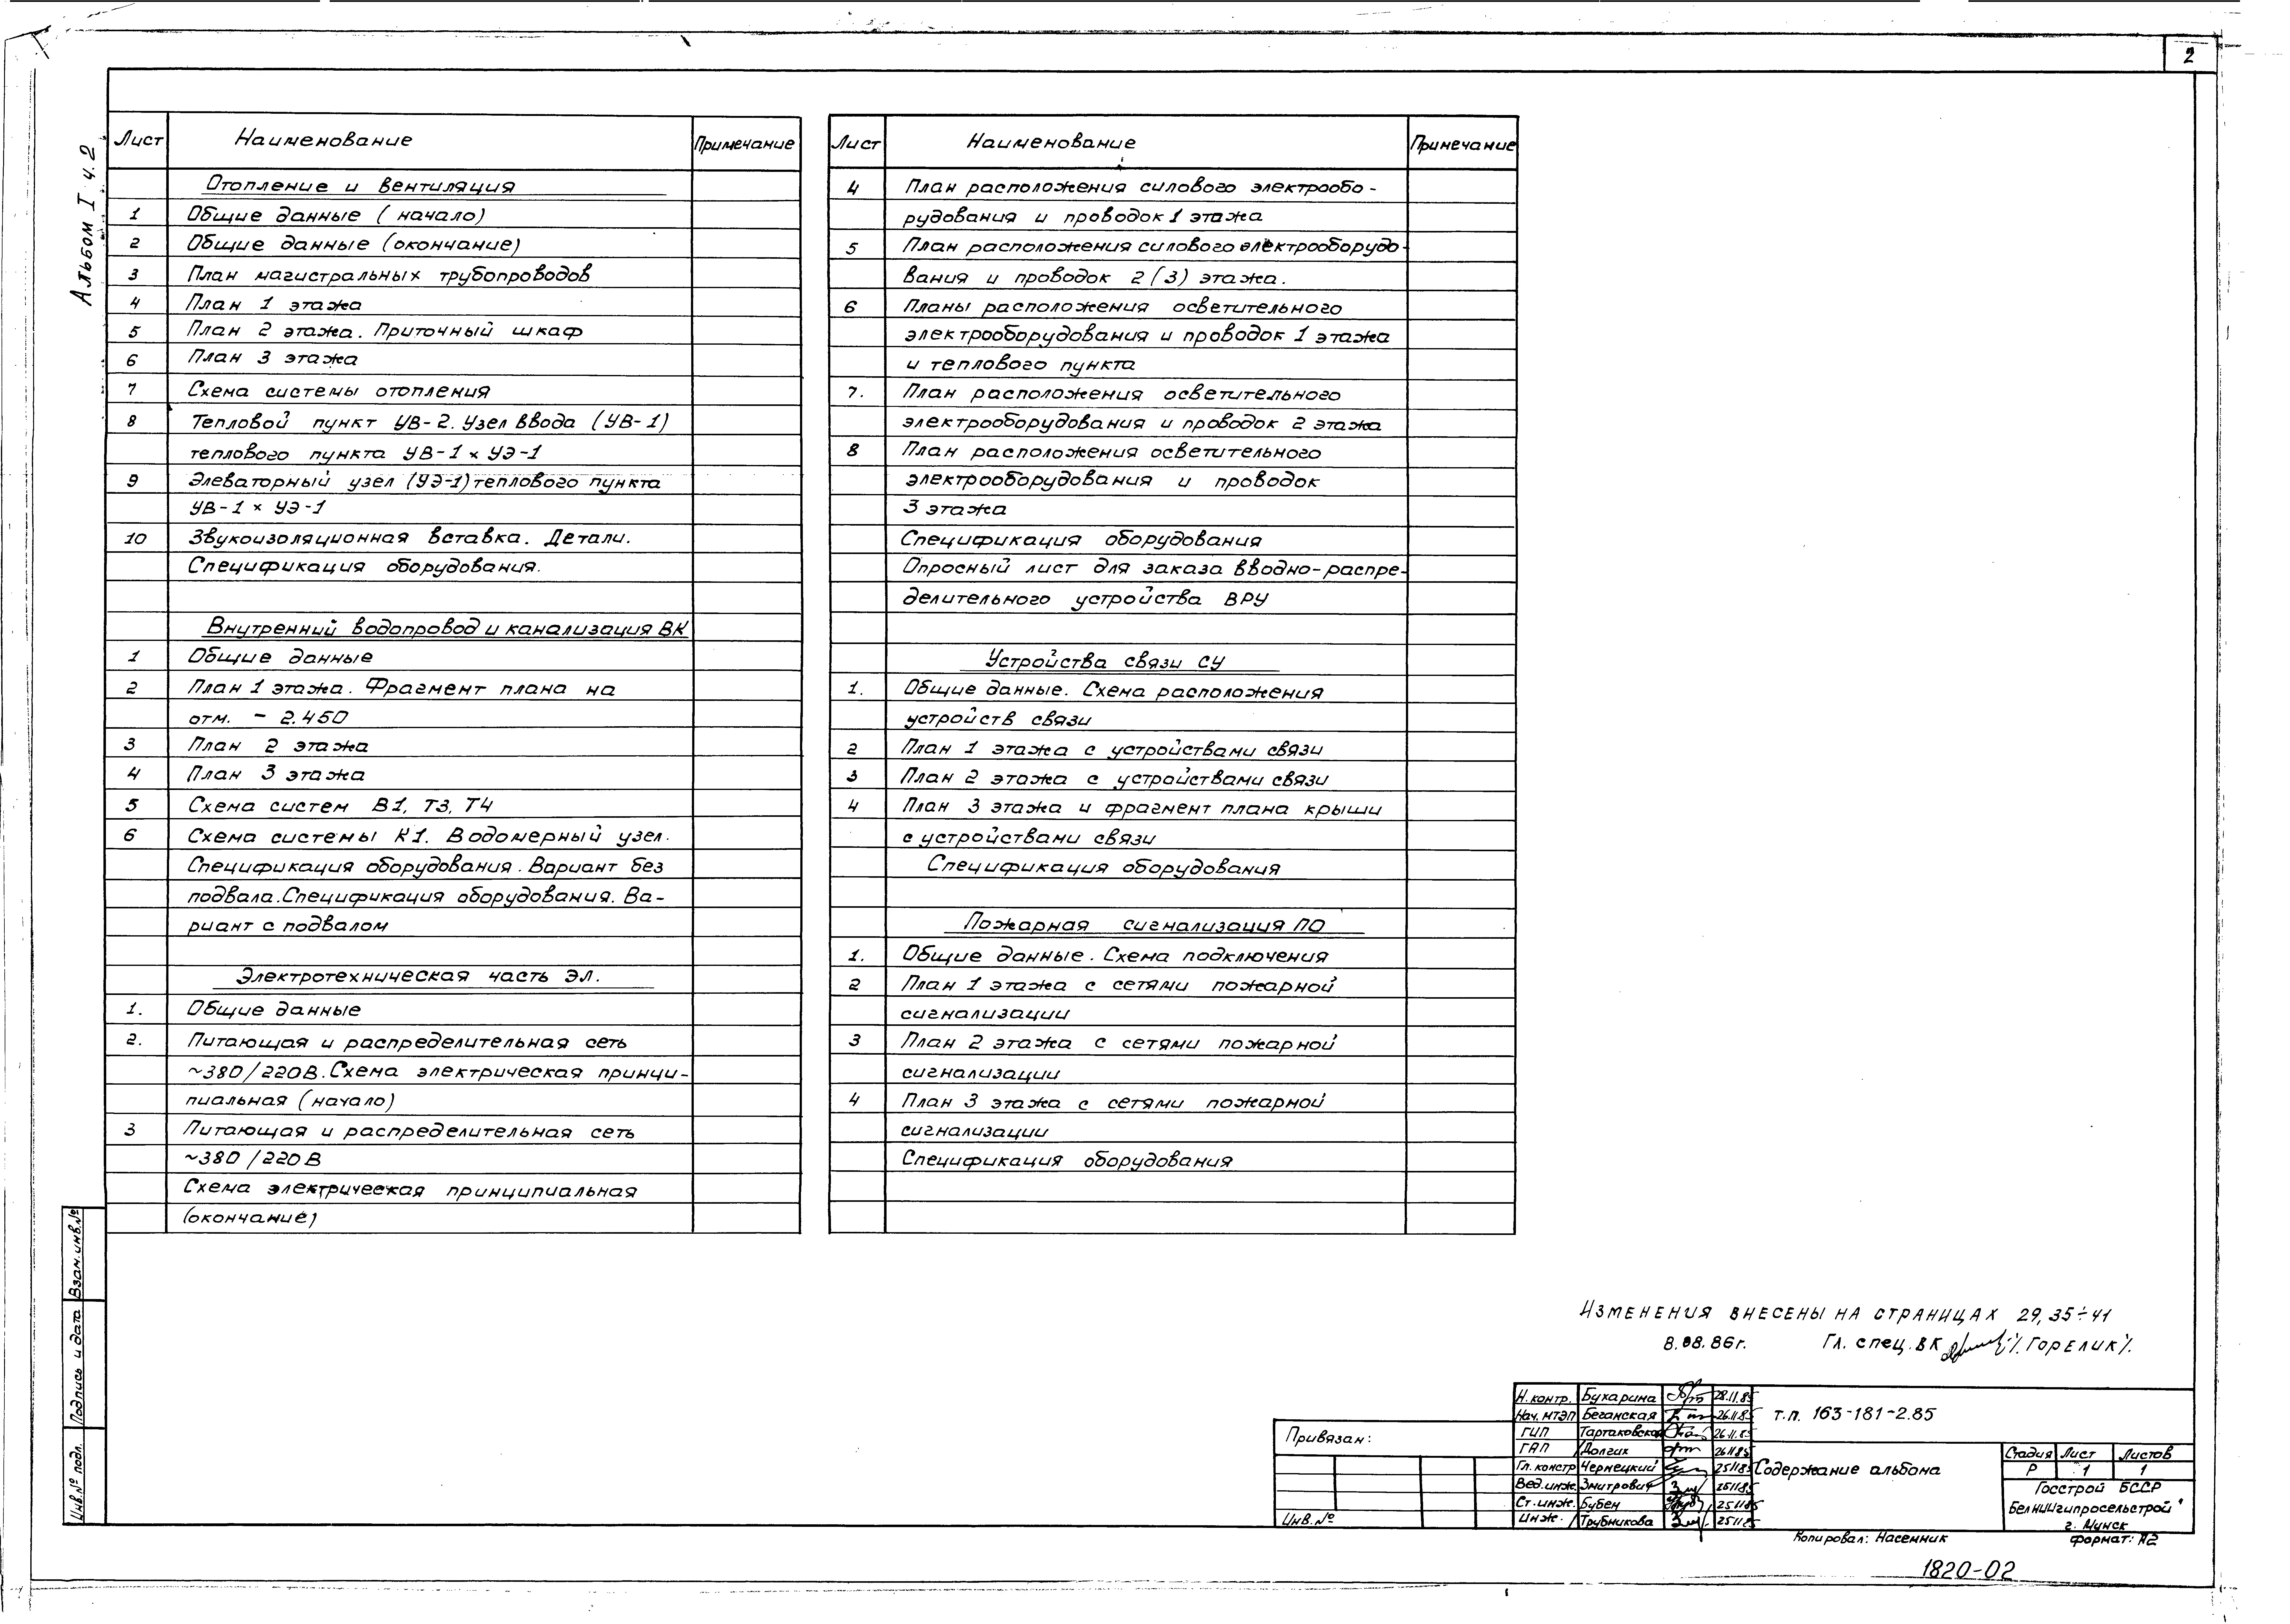 2
Альбом I ч. 2
Лист Наименование Примечание
Отопление и вентиляция
1 Общие данные (начало)
2 Общие данные (окончание)
3 План магистральных трубопроводов
4 План 1 этажа
5 План 2 этажа. Приточный шкаф
6 План 3 этажа
7 Схема системы отопления
8 Тепловой пункт УВ-2. Узел ввода (УВ-1)
теплового пункта УВ-1 × УЭ-1
9 Элеваторный узел (УЭ-1) теплового пункта
УВ-1 × УЭ-1
10 Звукоизоляционная вставка. Детали.
Спецификация оборудования.
Внутренний водопровод и канализация ВК
1 Общие данные
2 План 1 этажа. Фрагмент плана на
отм. - 2.450
3 План 2 этажа
4 План 3 этажа
5 Схема систем В1, Т3, Т4
6 Схема системы К1. Водомерный узел.
Спецификация оборудования. Вариант без
подвала. Спецификация оборудования. Ва-
риант с подвалом
Электротехническая часть ЭЛ.
1. Общие данные
2. Питающая и распределительная сеть
~380/220В. Схема электрическая принци-
пиальная (начало)
3 Питающая и распределительная сеть
~380/220В
Схема электрическая принципиальная
(окончание)
Лист Наименование Примечание
4 План расположения силового электрообо-
рудования и проводок 1 этажа
5 План расположения силового электрооборудо-
вания и проводок 2 (3) этажа.
6 Планы расположения осветительного
электрооборудования и проводок 1 этажа
и теплового пункта
7. План расположения осветительного
электрооборудования и проводок 2 этажа
8 План расположения осветительного
электрооборудования и проводок
3 этажа
Спецификация оборудования
Опросный лист для заказа вводно-распре-
делительного устройства ВРУ
Устройства связи СУ
1. Общие данные. Схема расположения
устройств связи
2 План 1 этажа с устройствами связи
3 План 2 этажа с устройствами связи
4 План 3 этажа и фрагмент плана крыши
с устройствами связи
Спецификация оборудования
Пожарная сигнализация ПО
1. Общие данные. Схема подключения
2 План 1 этажа с сетями пожарной
сигнализации
3 План 2 этажа с сетями пожарной
сигнализации
4 План 3 этажа с сетями пожарной
сигнализации
Спецификация оборудования
Взам.инв.№
Подпись и дата
Инв.№ подл.
Изменения внесены на страницах 29, 35÷41
8.08.86г. Гл. спец. ВК /Горелик/.
Привязан:
Инв.№
Н.контр. Бухарина 28.11.85
Нач. МТЭП Беганская 26.11.85
ГИП Тартаковская 26.11.85
ГАП Долгик 26.11.85
Гл. констр Чернецкий 25.11.85
Вед.инж. Змитрович 25.11.85
Ст.инж. Бубен 25.11.85
Инж. Трубникова 25.11.85
т.п. 163-181-2.85
Содержание альбома
Стадия Лист Листов
Р 1 1
Госстрой БССР
БелНИИгипросельстрой
г. Минск
Копировал: Насенник формат: А2
1820-02